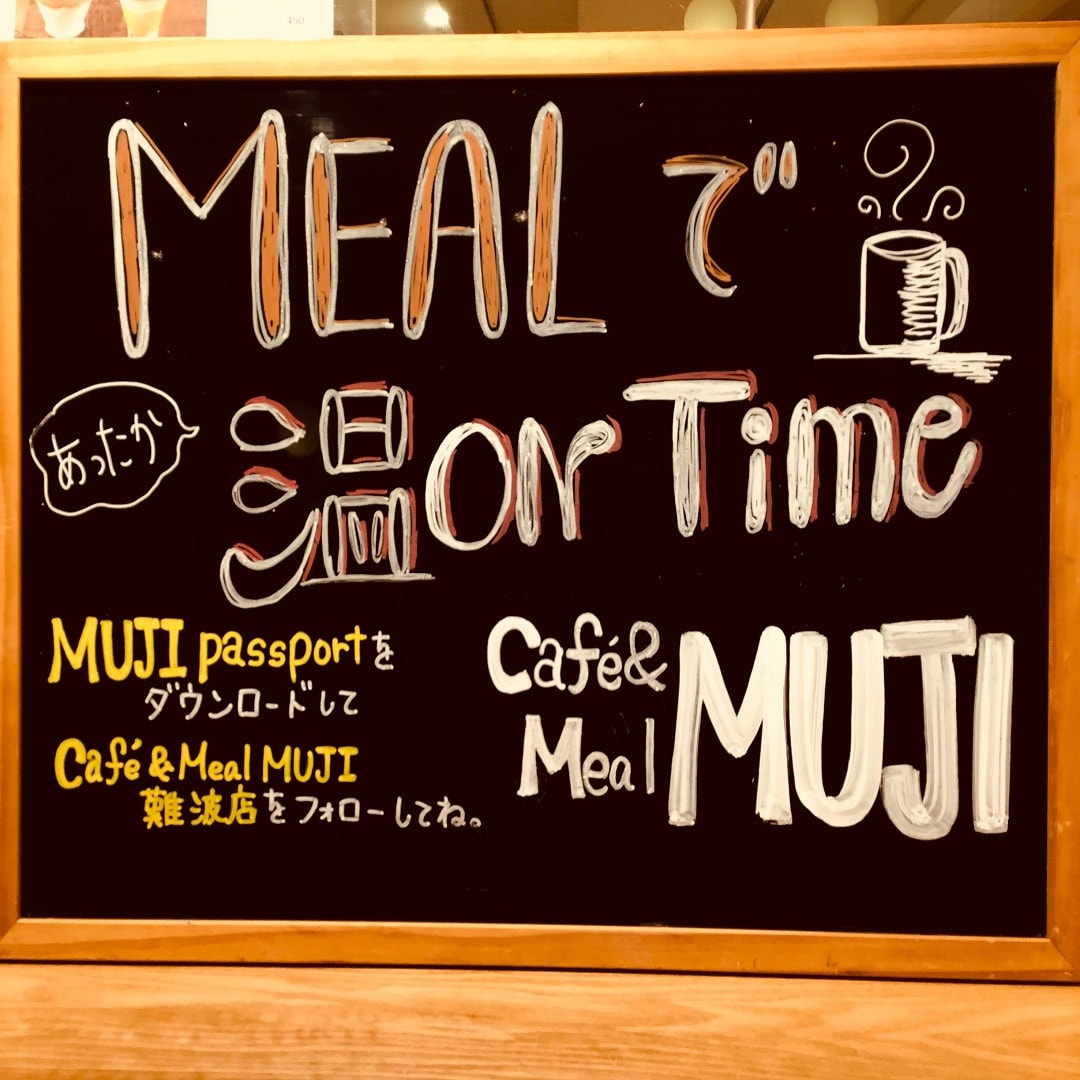 450
MEALで
あったか
温on Time
MUJI passportを
ダウンロードして
Café & Meal MUJI
難波店をフォローしてね。
Café &
Meal MUJI